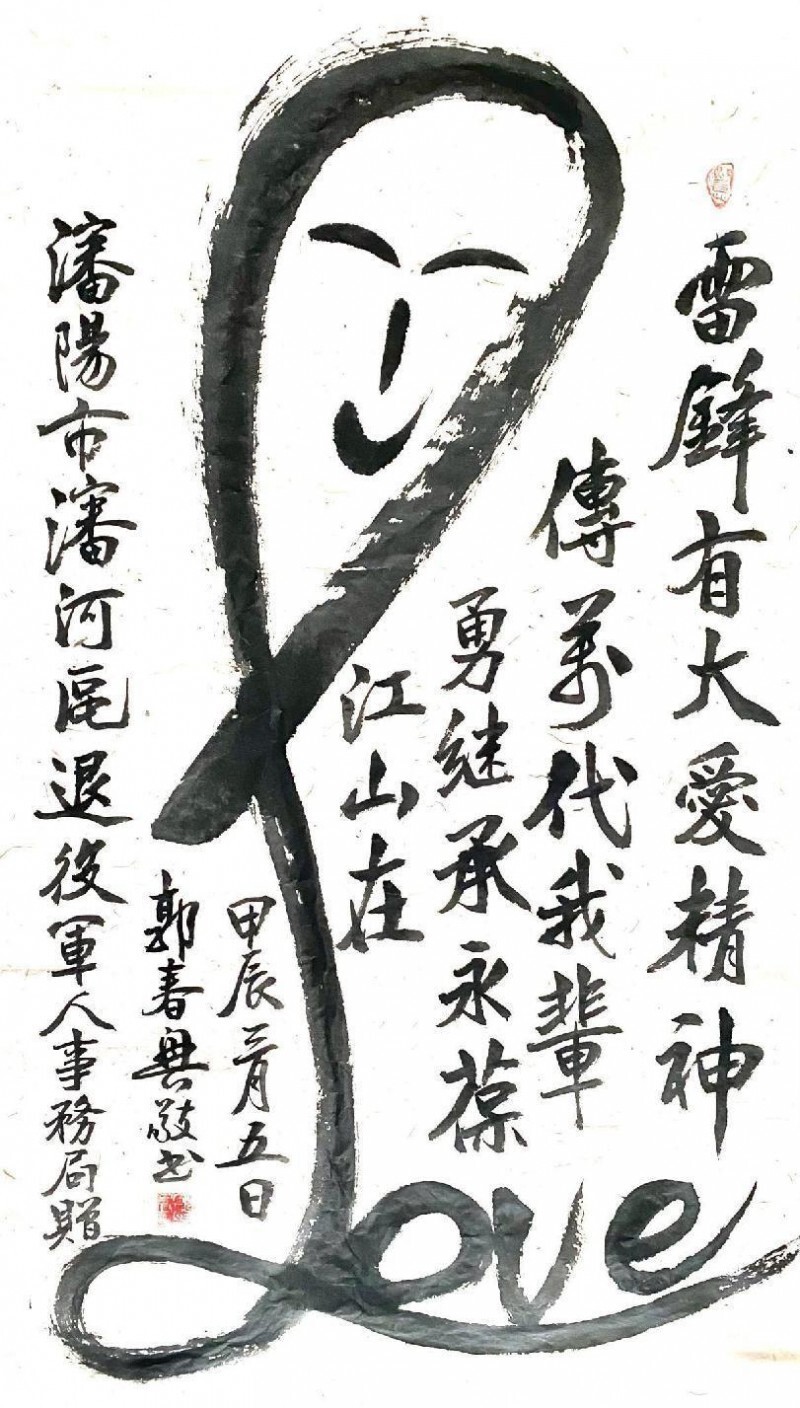 雷鋒有大愛精神
傳萬代我輩
勇継承永葆
江山在
甲辰三月五日
郭春興敬书
瀋陽市瀋河區退役軍人事務局贈
Love